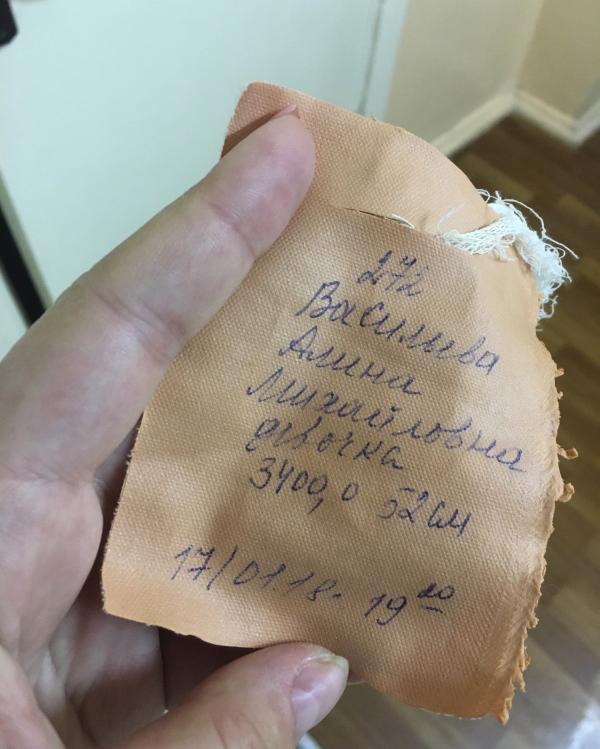 272
Васильева
Алина
Михайловна
девочка
3400,0 52 см
17/01.18. 19 20